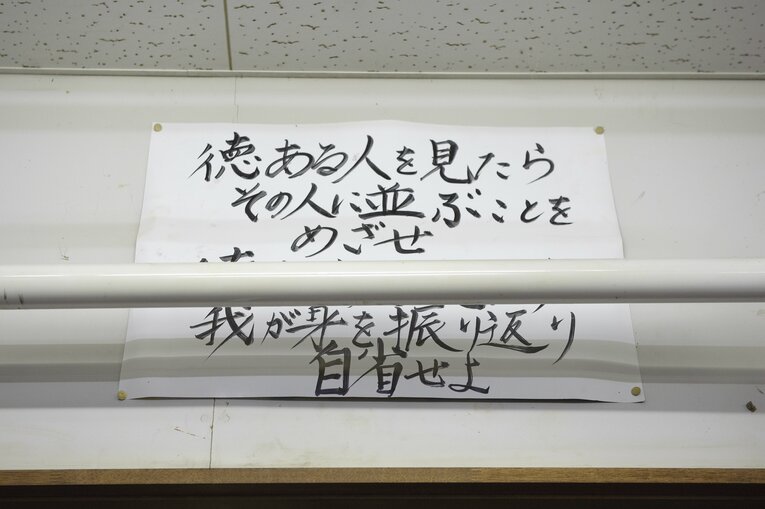 徳ある人を見たら
その人に並ぶことを
めざせ
我が身を振り返り
自省せよ